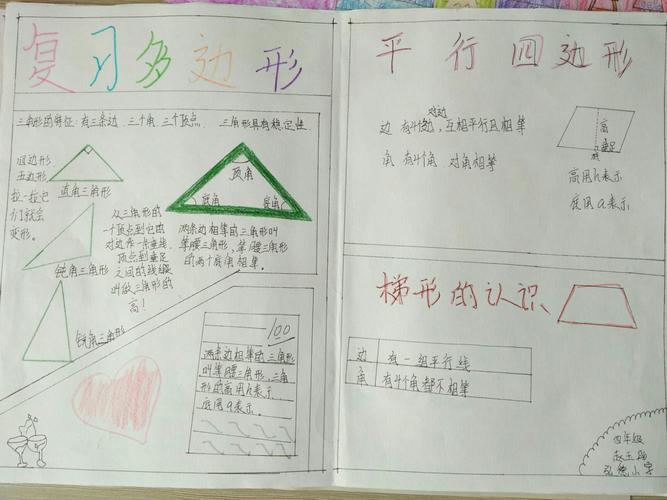 复习多边形
三角形的特征:有三条边、三个角、三个顶点、三角形具有稳定性.
四边形
五边形
拉一拉它
们就会
变形。
直角三角形
钝角三角形
锐角三角形
从三角形的
一个顶点到它的
对边作一条垂线,
顶点到垂足
之间的线段
叫做三角形的
高!
顶角
底角
底角
两条边相等的三角形叫
等腰三角形,等腰三角形
的两个底角相等。
100
两条边相等的三角形
叫等腰三角形,三角
形的高用h表示
底用a表示。
平行四边形
对边
边 有4边,互相平行且相等
角 有4个角 对角相等
高
垂足
底
高用h表示
底用a表示
梯形的认识
边 有一组平行线
角 有4个角都不相等
四年级
弘德小学